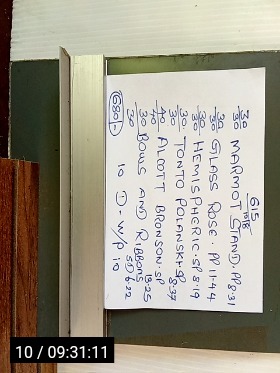 615
30/30 MARMOT STAND . PP 8-31
30/30 GLASS ROSE . PP 11-44
30/30 HEMISPHERIC . SP 8-19
30/30 TONTO POLANSKI . SP 8-37
40/40 ALCOTT BRONSON . SP
30/30 BOWS AND RIBBONS 13-25
SD 6-22
680/- 10 - W/P 10
10 / 09:31:11